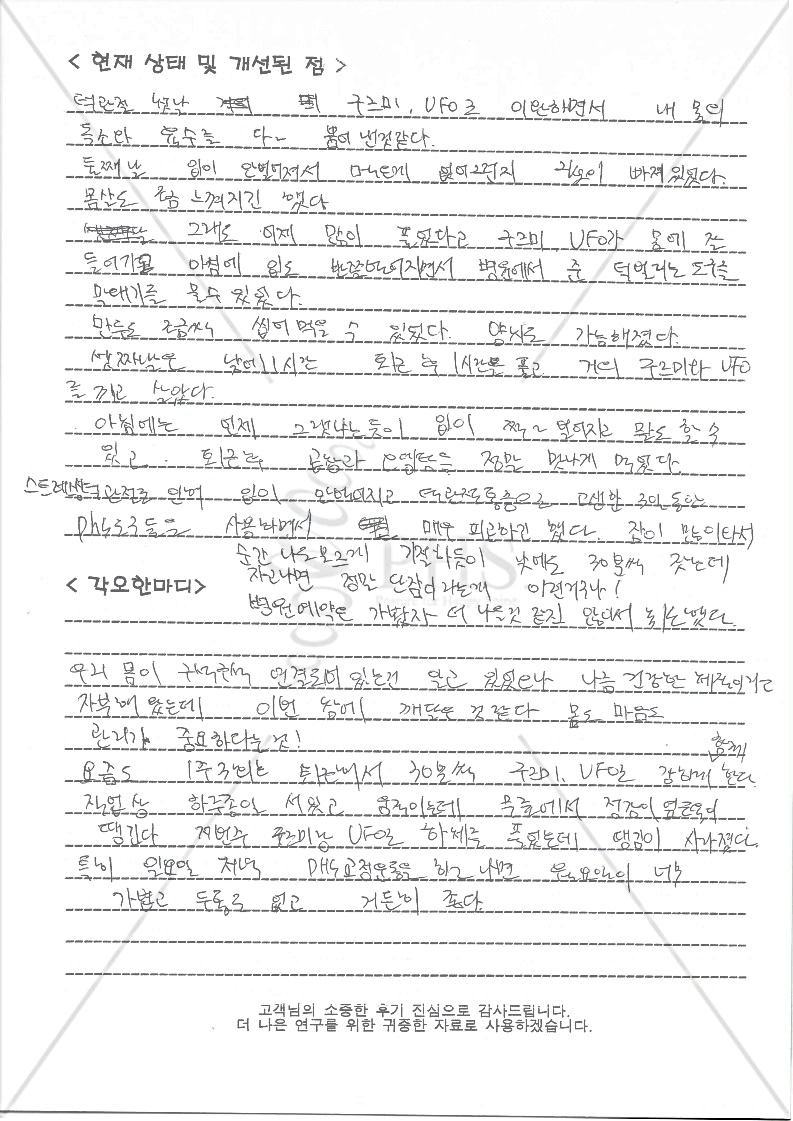 < 현재 상태 및 개선된 점 >
턱관절 첫날 구르미, UFO로 이완하면서 내 몸의
독소와 가 다~ 뿜어 낸것같다.
둘째날 입이 안벌어져서 기운이 빠져있었다.
몸살도 조금 느껴지긴 했다
그래도 어제 많이 풀었다고 구르미 UFO가 몸에 잘
들어가고 아침에 입도 반쯤벌어지면서 병원에서 준 턱벌리는 도구를
막대기를 물수 있었다.
만두도 조금씩 씹어 먹을 수 있었다. 양치도 가능해졌다.
셋째날은 낮에 1시간 퇴근 후 1시간 풀고 거의 구르미와 UFO
를 끼고 살았다.
아침에는 언제 그랬냐는듯이 입이 쩍~ 벌어지고 말도 할 수
있고 퇴근후 곱창과 오염통을 정말 맛나게 먹었다.
스트레성 턱관절로 인해 입이 안벌어지고 턱관절통증으로 고생한 3일동안
PHS도구들을 사용하면서 매우 피곤하긴 했다. 잠이 많이와서
순간 나도모르게 기절하듯이 낮에도 30분씩 잤는데
자고나면 정말 단잠이라는게 이런거구나!
< 각오한마디>
병원예약은 가봤자 더 나을것 같지 않아서 취소했다.
우리 몸이 구석구석 연결되어 있는건 알고 있었으나 나름 건강한 체질이라고
자부해 왔는데 이번 참에 깨달은 것 같다 몸도 마음도
관리가 중요하다는 것!
요즘도 1주 퇴근해서 30분씩 구르미, UFO로 함께 한다.
직업상 하루종일 서있고 움직이는데 무릎에서 정강이
땡긴다 저번주 구르미랑 UFO로 하체를 풀었는데 땡김이 사라졌다.
특히 일요일 저녁 PHS교정운동을 하고 나면 월요일이 너무
가볍고 두통도 없고 거든히 좋다
고객님의 소중한 후기 진심으로 감사드립니다.
더 나은 연구를 위한 귀중한 자료로 사용하겠습니다.